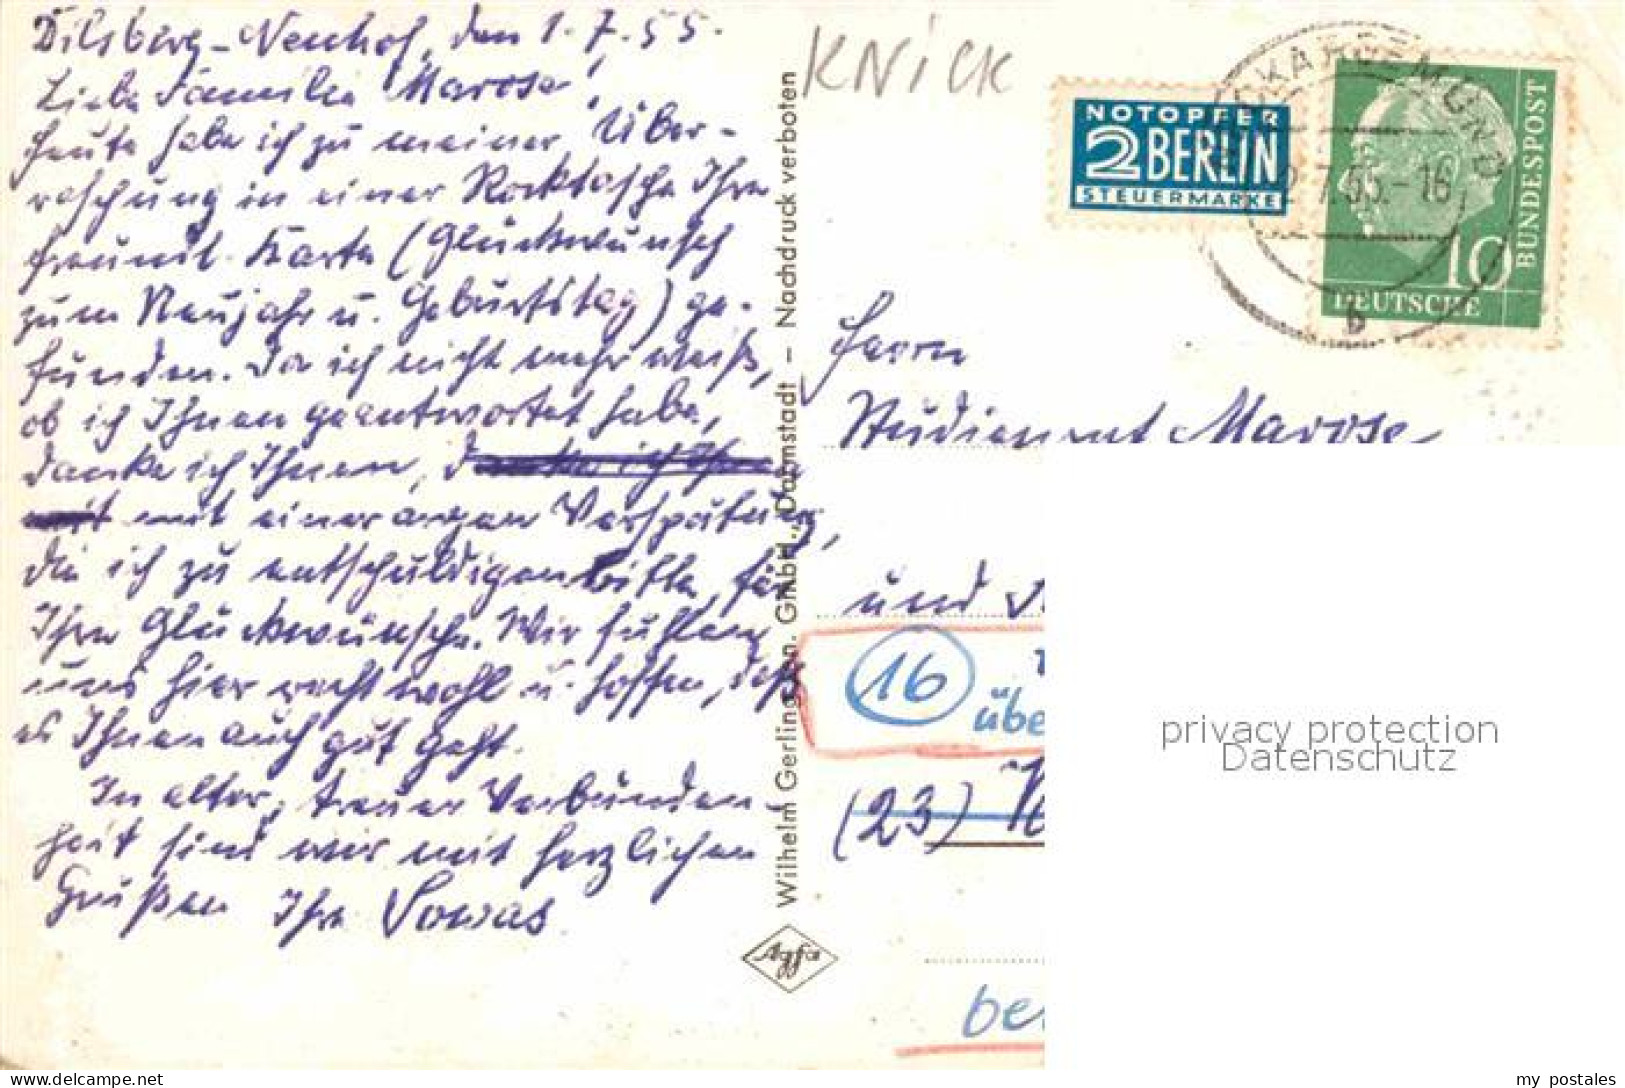 Dilsberg-Neuhof, den 1.7.55.
Liebe Familie Marose,
heute habe ich zu meiner Über-
raschung in einer Rocktasche Ihre
freundl. Karte (Glückwunsch
zum Neujahr u. Geburtstag) ge-
funden. Da ich nicht mehr weiß,
ob ich Ihnen geantwortet habe,
danke ich Ihnen, danke ich Ihnen
mit mit einer argen Verspätung,
die ich zu entschuldigen bitte, für
Ihre Glückwünsche. Wir fühlen
uns hier recht wohl u. hoffen, daß
es Ihnen auch gut geht.
In alter, treuer Verbunden-
heit sind wir mit herzlichen
Grüßen Ihre
Wilhelm Gerling, Gn. GmbH., Darmstadt – Nachdruck verboten
Agfa
KNICK
NOTOPFER
2 BERLIN
STEUERMARKE
2.7.55.-16
b
10
DEUTSCHE
BUNDESPOST
Herrn
Studienrat Marose
und
16
übe
(23)
be
privacy protection
Datenschutz
www.delcampe.net
my_postales